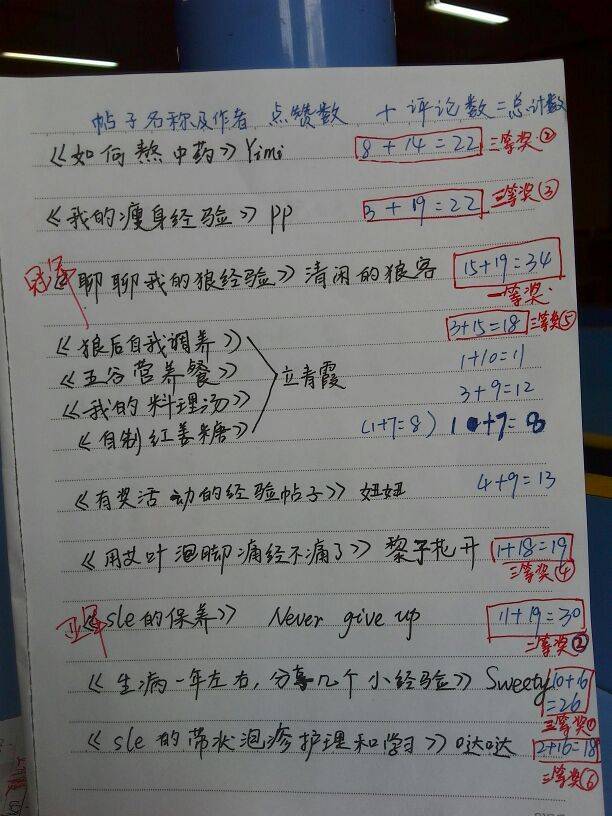 帖子名称及作者 点赞数 + 评论数 = 总计数
《如何熬中药》Yimi 8+14=22 三等奖②
《我的瘦身经验》pp 3+19=22 三等奖③
冠军 聊聊我的狼经验》清闲的狼客 15+19=34
一等奖
《狼后自我调养》 3+15=18 三等奖⑤
《五谷营养餐》 立青霞 1+10=11
《我的料理汤》 3+9=12
《自制红姜糖》 (1+7=8) 1+7=8
《有奖活动的经验帖子》妞妞 4+9=13
《用艾叶泡脚痛经不痛了》黎子花开 1+18=19
三等奖④
亚军 《sle的保养》 Never give up 11+19=30
二等奖②
《生病一年左右,分享几个小经验》Sweety 10+16
=26
三等奖①
《sle的带状泡疹护理和学习》哒哒 2+16=18
三等奖⑥